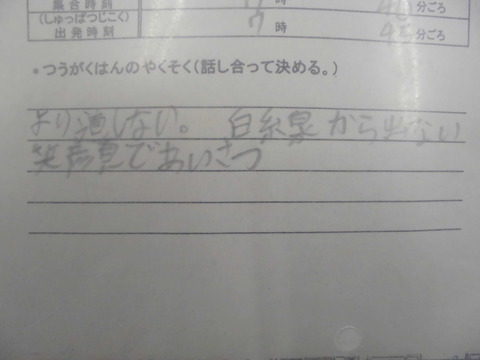 集合時刻 7時 分ごろ
(しゅっぱつじこく)
出発時刻 7時 分ごろ
*つうがくはんのやくそく(話し合って決める。)
より道しない。 白線から出ない
笑顔であいさつ